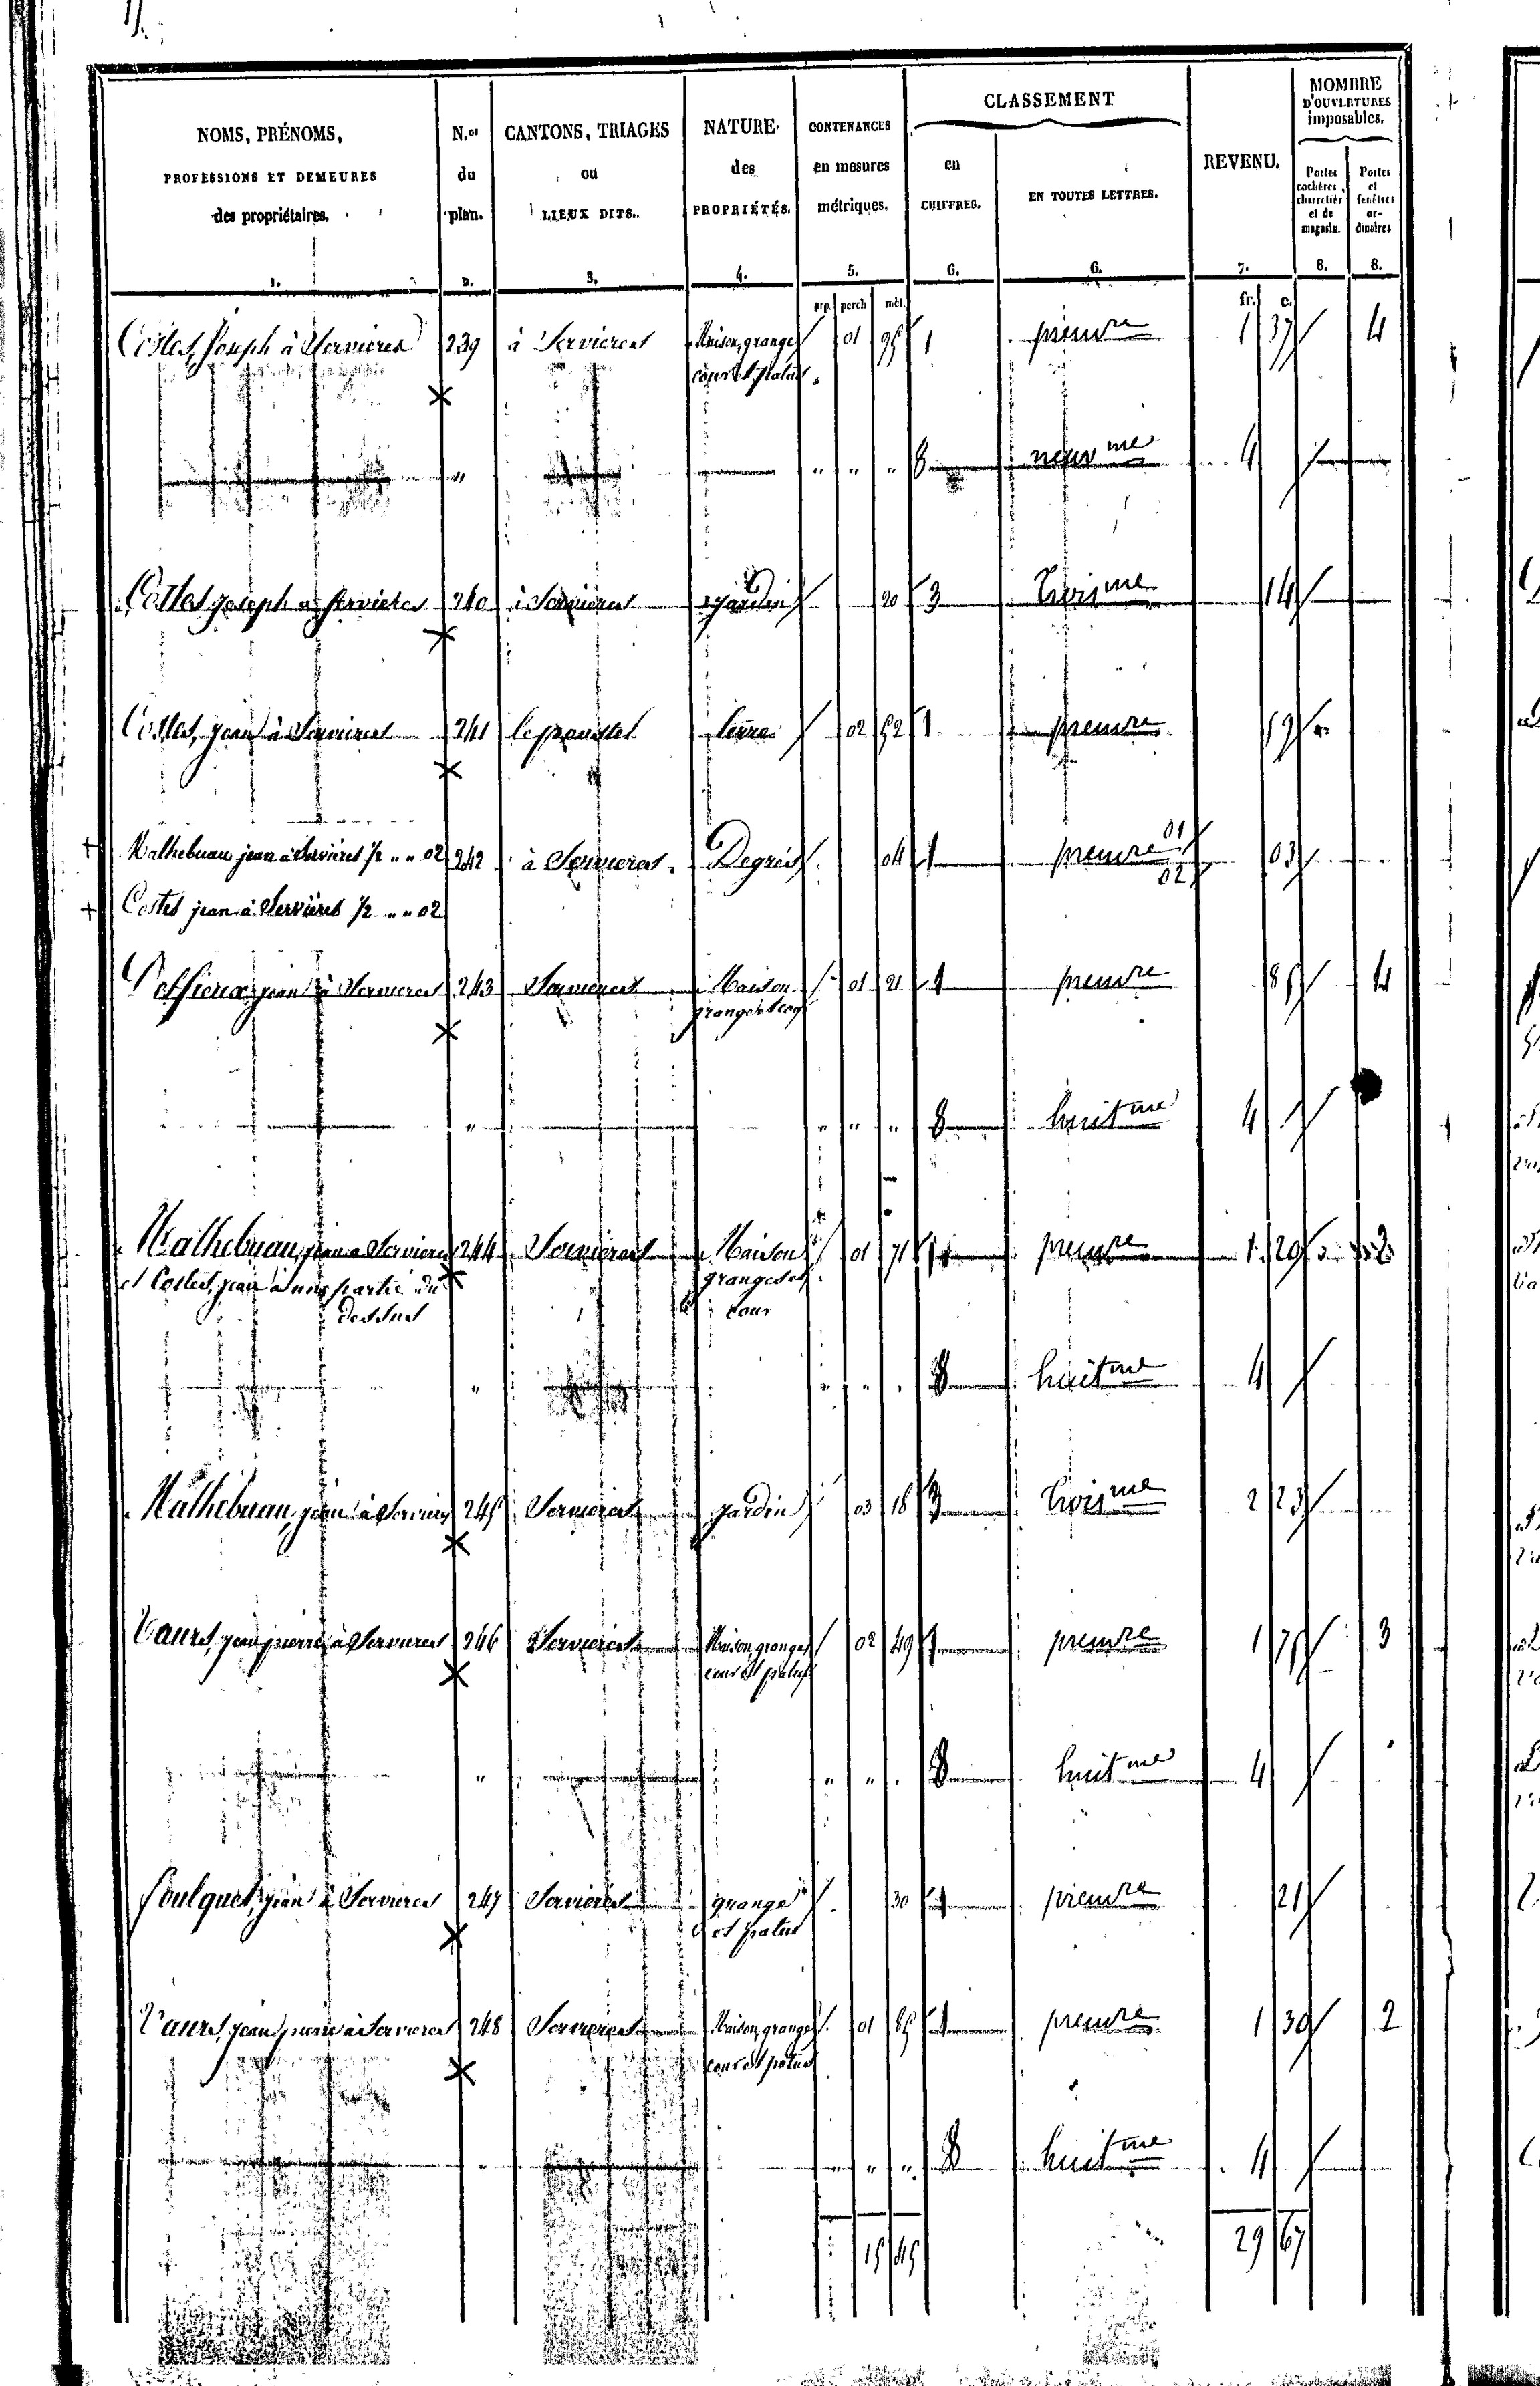 NOMS, PRÉNOMS, PROFESSIONS ET DEMEURES des propriétaires. N.os du plan. CANTONS, TRIAGES ou LIEUX DITS. NATURE des PROPRIÉTÉS. CONTENANCES en mesures métriques. CLASSEMENT en CHIFFRES. EN TOUTES LETTRES. REVENU. NOMBRE D'OUVERTURES imposables. Portes cochères, charretièr et de magasin. Portes et fenêtres or-dinaires
1. 2. 3. 4. 5. 6. 6. 7. 8. 8.
arp. perch mèt. fr. c.
Costes, Joseph à Servières 239 à Servieres Maison, grange 01 95 1 premre 1 37 4
cour et patus
" " " " 8 me 4
Costes joseph à servières 240 à Servieres jardin 20 3 troisme 14
Costes, jean à Servieres 241 terre 02 52 1 premre 19
Malhebuau jean à Servières 1/2 " " 02 242 à Servieres Degrés 04 1 premre 01 02 03
Costes jean à Servières 1/2 " " 02
jean à Servieres 243 Servieres Maison 01 21 1 premre 85 4
grange et cour
" " " " 8 huitme 4
Malhebuau, jean à Servieres 244 Servieres Maison 01 71 1 premre 1 29 2
et Costes, jean à une partie du grange et
dessus cour
" " " " 8 huitme 4
Malhebuau, jean à Servieres 245 Servieres jardin 03 18 3 troisme 2 23
Vaurs, jean pierre à Servieres 246 Servieres Maison, grange 02 49 1 premre 1 75 3
cour et patus
" " " " 8 huitme 4
Foulquet, jean à Servieres 247 Servieres grange 30 1 premre 21
et patus
Vaurs, jean pierre à Servieres 248 Servieres Maison, grange 01 85 1 premre 1 30 2
cour et patus
" " " " 8 huitme 4
15 45 29 67